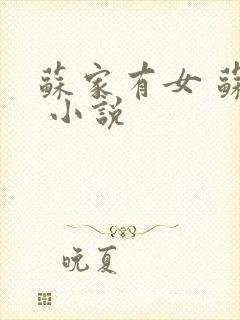 蘇家有女 蘇
小說
晚夏